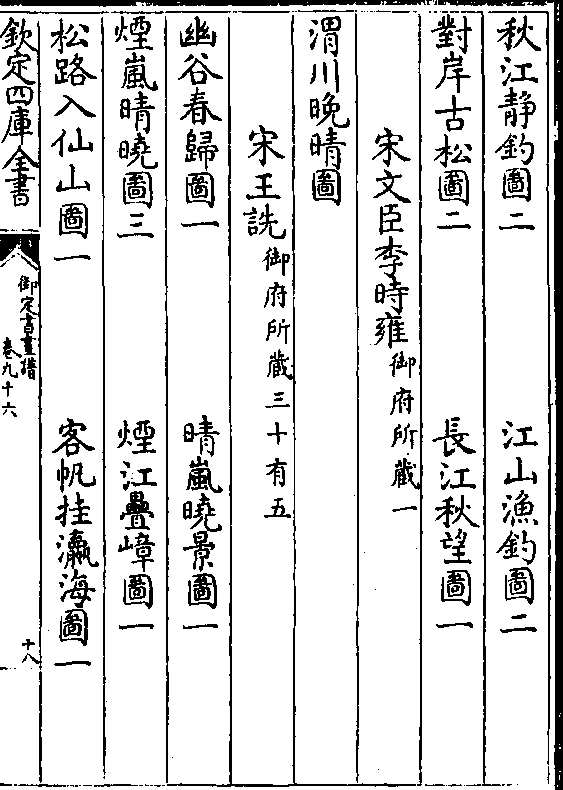 秋江静釣圖二　江山漁釣圖二
對岸古松圖二　長江秋望圖一
宋文臣李時雍御府所藏一
渭川晚晴圖
宋王詵御府所藏三十有五
幽谷春歸圖一　晴嵐曉景圖一
煙嵐晴曉圖三　煙江疊嶂圖一
松路入仙山圖一　客帆挂瀛海圖一
欽定四庫全書　御定書畫譜　卷九十六　十八